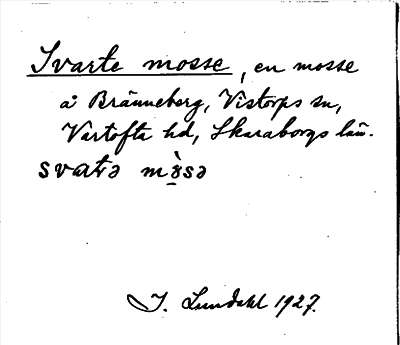 Svarte mosse, en mosse
å Bränneberg, Vistorps sn,
Vartofta hd, Skaraborgs län.
svatə m&#x300;ɤsə
J. Lundahl 1927.